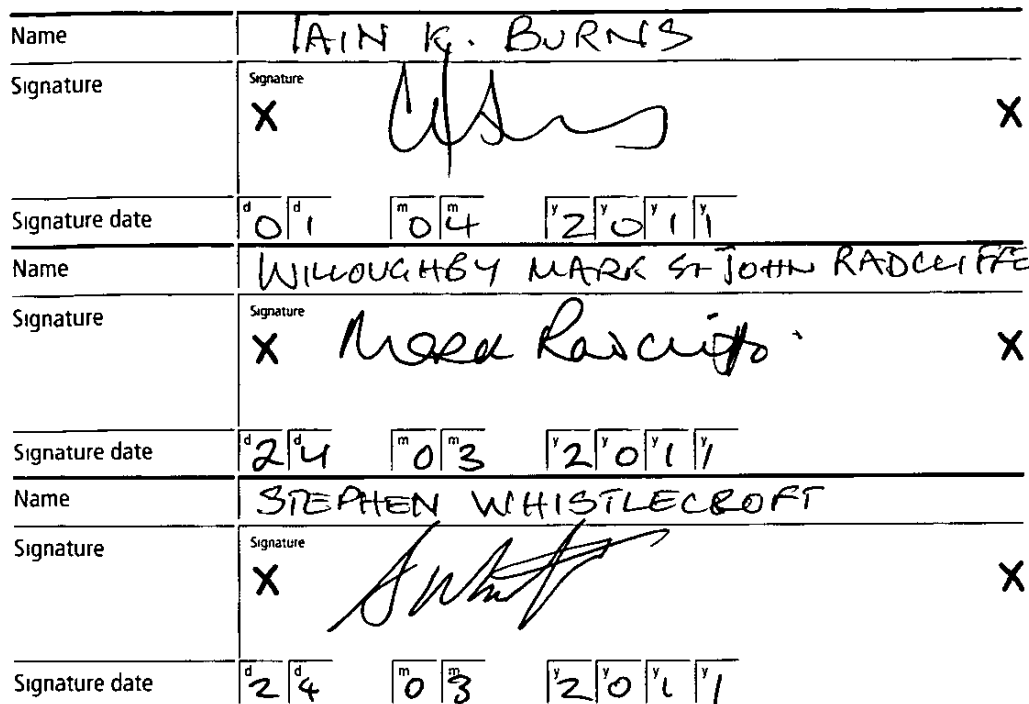 Name IAIN K. BURNS
Signature Signature
X X
Signature date d0 d1 m0 m4 y2 y0 y1 y1
Name WILLOUGHBY MARK St JOHN RADCLIFFE
Signature Signature
X Mark Radcliffe X
Signature date d2 d4 m0 m3 y2 y0 y1 y1
Name STEPHEN WHISTLECROFT
Signature Signature
X X
Signature date d2 d4 m0 m3 y2 y0 y1 y1